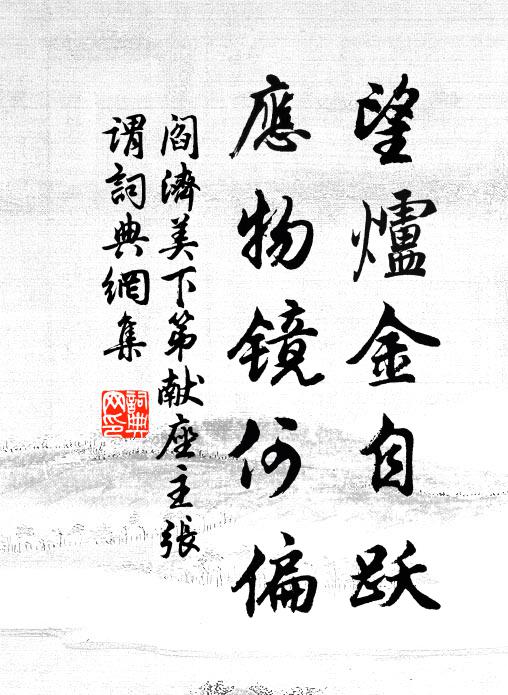 望爐金自跃
應物镜何偏
阎濟美下第献座主張
谓詞典網集
詞典網印